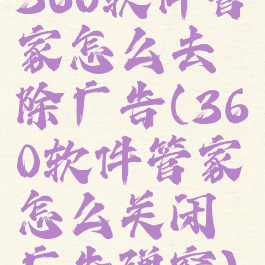 360软件管
家怎么去
除广告(36
0软件管家
怎么关闭
广告弹窗)